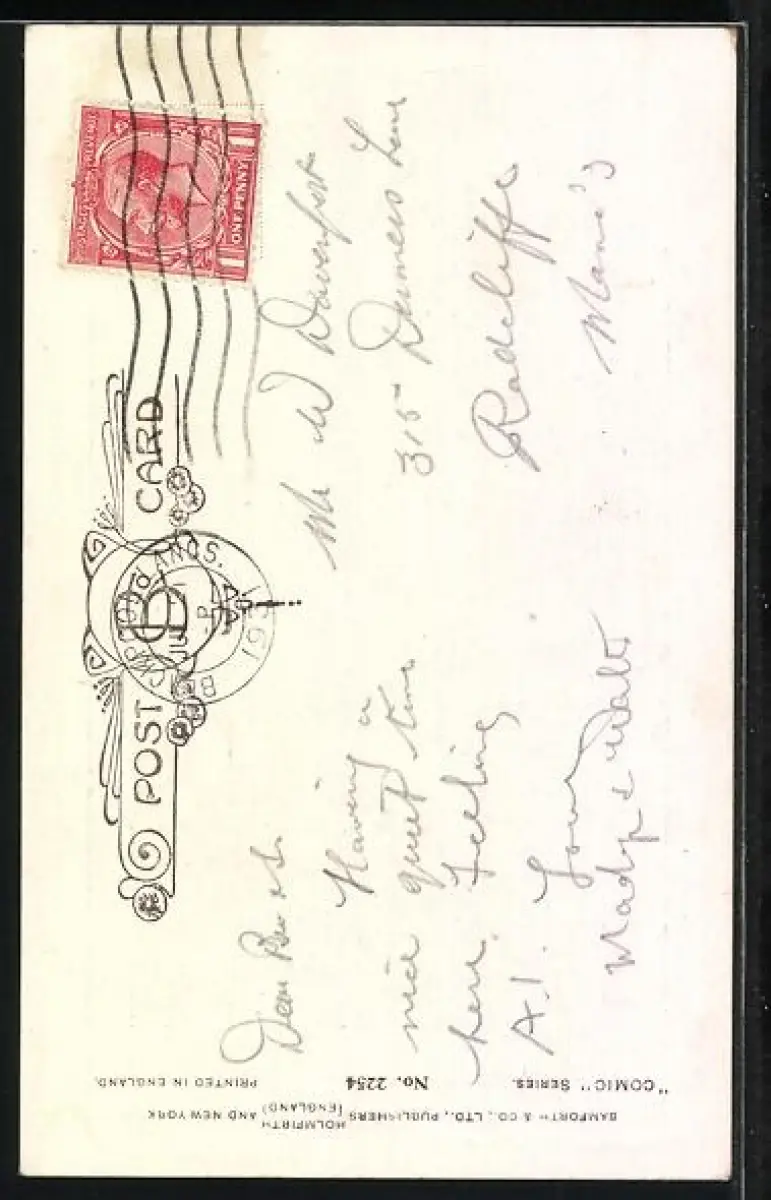 POST CARD
ONE PENNY
Dear B
Having a
nice quiet time
here. Feeling
A.1. Love
Madge & Walt
Mr W Davenport
315 Dumers Lane
Radcliffe
Manc's
"COMIC" SERIES. No. 2254 PRINTED IN ENGLAND.
BAMFORTH & CO., LTD., PUBLISHERS HOLMFIRTH (ENGLAND) AND NEW YORK